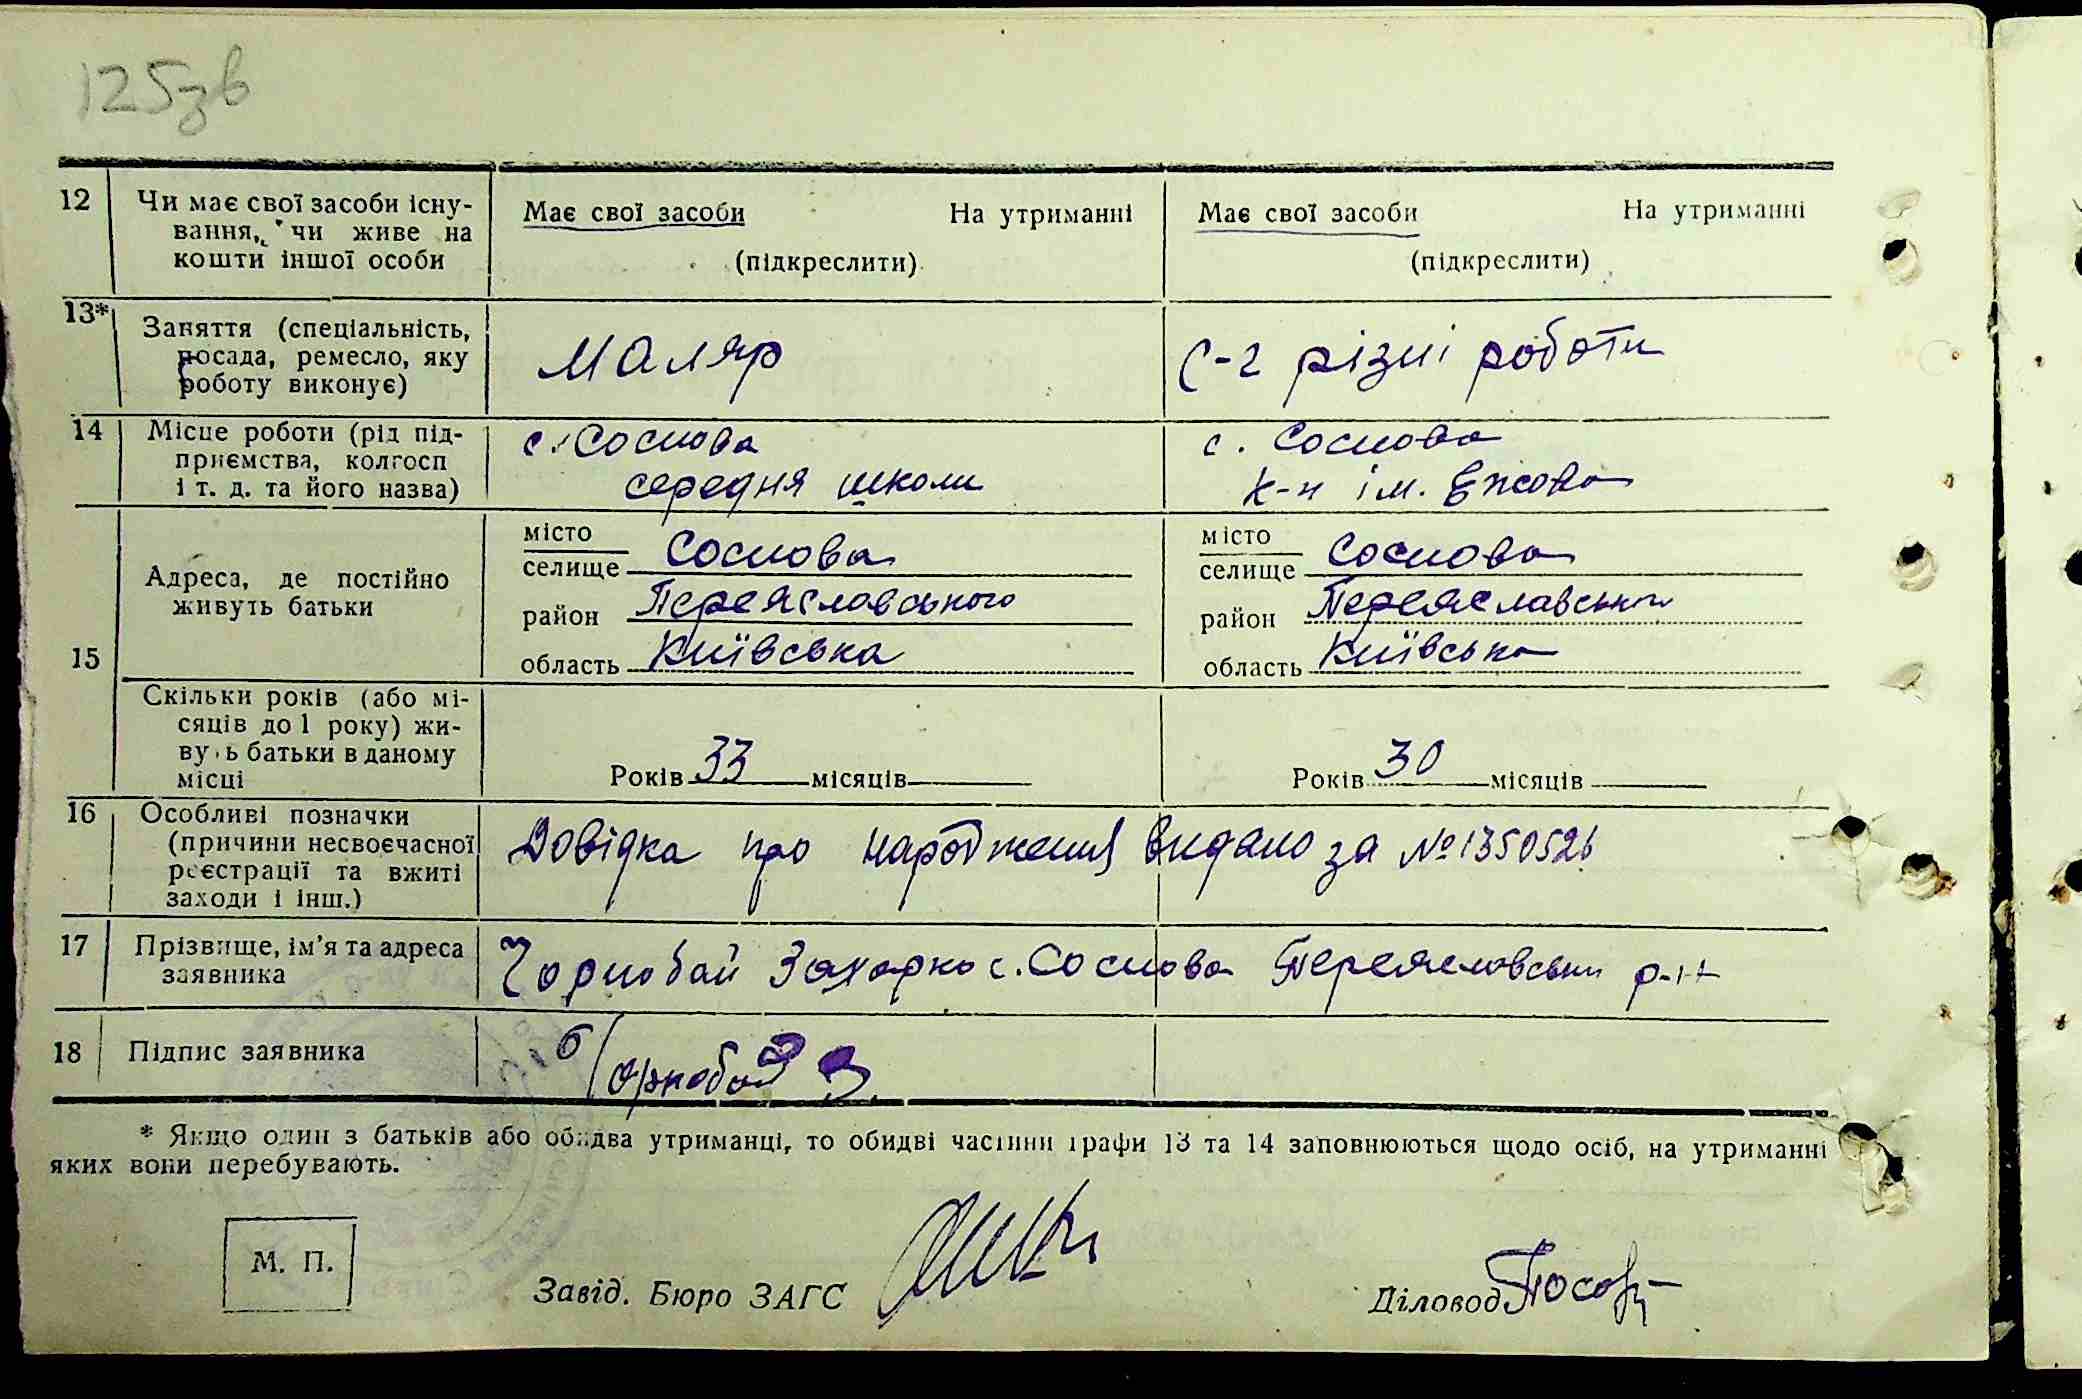 125зв
12 Чи має свої засоби існу-
вання, чи живе на
кошти іншої особи
Має свої засоби На утриманні
(підкреслити)
Має свої засоби На утриманні
(підкреслити)
13* Заняття (спеціальність,
посада, ремесло, яку
роботу виконує)
Маляр
С-г різні роботи
14 Місце роботи (рід під-
приємства, колгосп
і т. д. та його назва)
с. Соснова
середня школи
с. Соснова
к-п ім. Єжова
15 Адреса, де постійно
живуть батьки
місто
селище Соснова
район Переяславського
область Київська
місто
селище Соснова
район Переяславський
область Київська
Скільки років (або мі-
сяців до 1 року) жи-
вуть батьки в даному
місці
Років 33 місяців
Років 30 місяців
16 Особливі позначки
(причини несвоєчасної
реєстрації та вжиті
заходи і інш.)
Довідка про народження видано за №1350526
17 Прізвище, ім'я та адреса
заявника
Чорнобай Захарко с. Соснова Переяславськи р-н
18 Підпис заявника
Чорнобай З.
* Якщо один з батьків або обидва утриманці, то обидві частини графи 13 та 14 заповнюються щодо осіб, на утриманні
яких вони перебувають.
М. П.
Завід. Бюро ЗАГС
Діловод